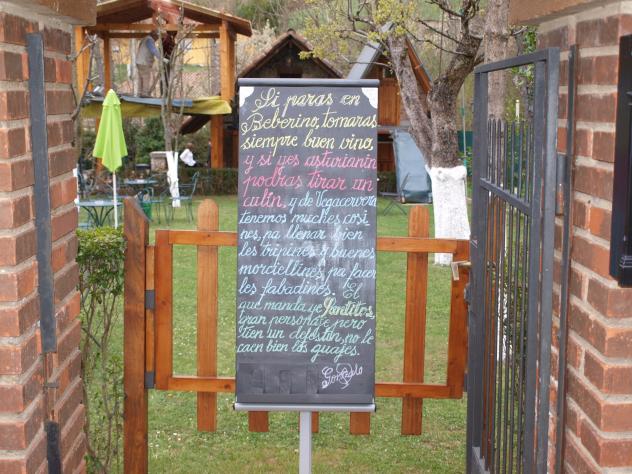 Si paras en
Beberino, tomaras
siempre buen vino,
y si yes asturianin
podras tirar un
culin, y de Vegacervera
tenemos muches cosi
nes, pa llenar bien
les tripines y buenes
morciellines, pa facer
les fabadines. El
que manda ye
gran personaje pero
tien un defeston, no le
caen bien los guajes.
Gonzalo